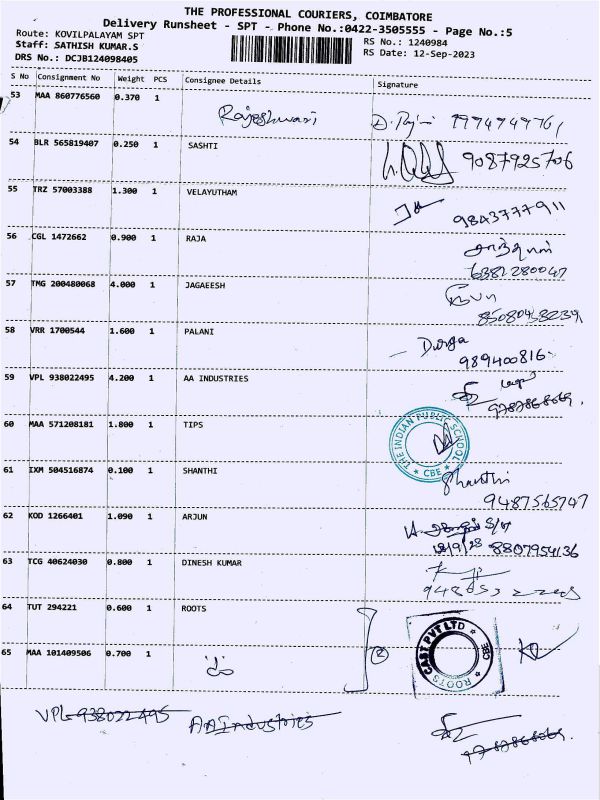 THE PROFESSIONAL COURIERS, COIMBATORE
Delivery Runsheet - SPT - Phone No.:0422-3505555 - Page No.:5
Route: KOVILPALAYAM SPT
RS No.: 1240984
Staff: SATHISH KUMAR.S
RS Date: 12-Sep-2023
DRS No.: DCJB124098405
S No Consignment No Weight PCS Consignee Details Signature
53 MAA 860776560 0.370 1 Rajeshwari D. Rajni
54 BLR 565819407 0.250 1 SASHTI 9087925706
55 TRZ 57003388 1.300 1 VELAYUTHAM 9843777911
56 CGL 1472662 0.900 1 RAJA
6381280047
57 TMG 200480068 4.000 1 JAGAEESH
58 VRR 1700544 1.600 1 PALANI Durga
989400816
59 VPL 938022495 4.200 1 AA INDUSTRIES
9787868069.
60 MAA 571208181 1.800 1 TIPS THE INDIAN PUBLIC SCHOOL * CBE *
61 IXM 504516874 0.100 1 SHANTHI Shanthi
9487565747
62 KOD 1266401 1.090 1 ARJUN
12/9/23 8807954136
63 TCG 40624030 0.800 1 DINESH KUMAR
64 TUT 294221 0.600 1 ROOTS
65 MAA 101409506 0.700 1 ② ROOTS CAST PVT LTD * CBE *
VPL-938022495 AA Industries
9787868069.